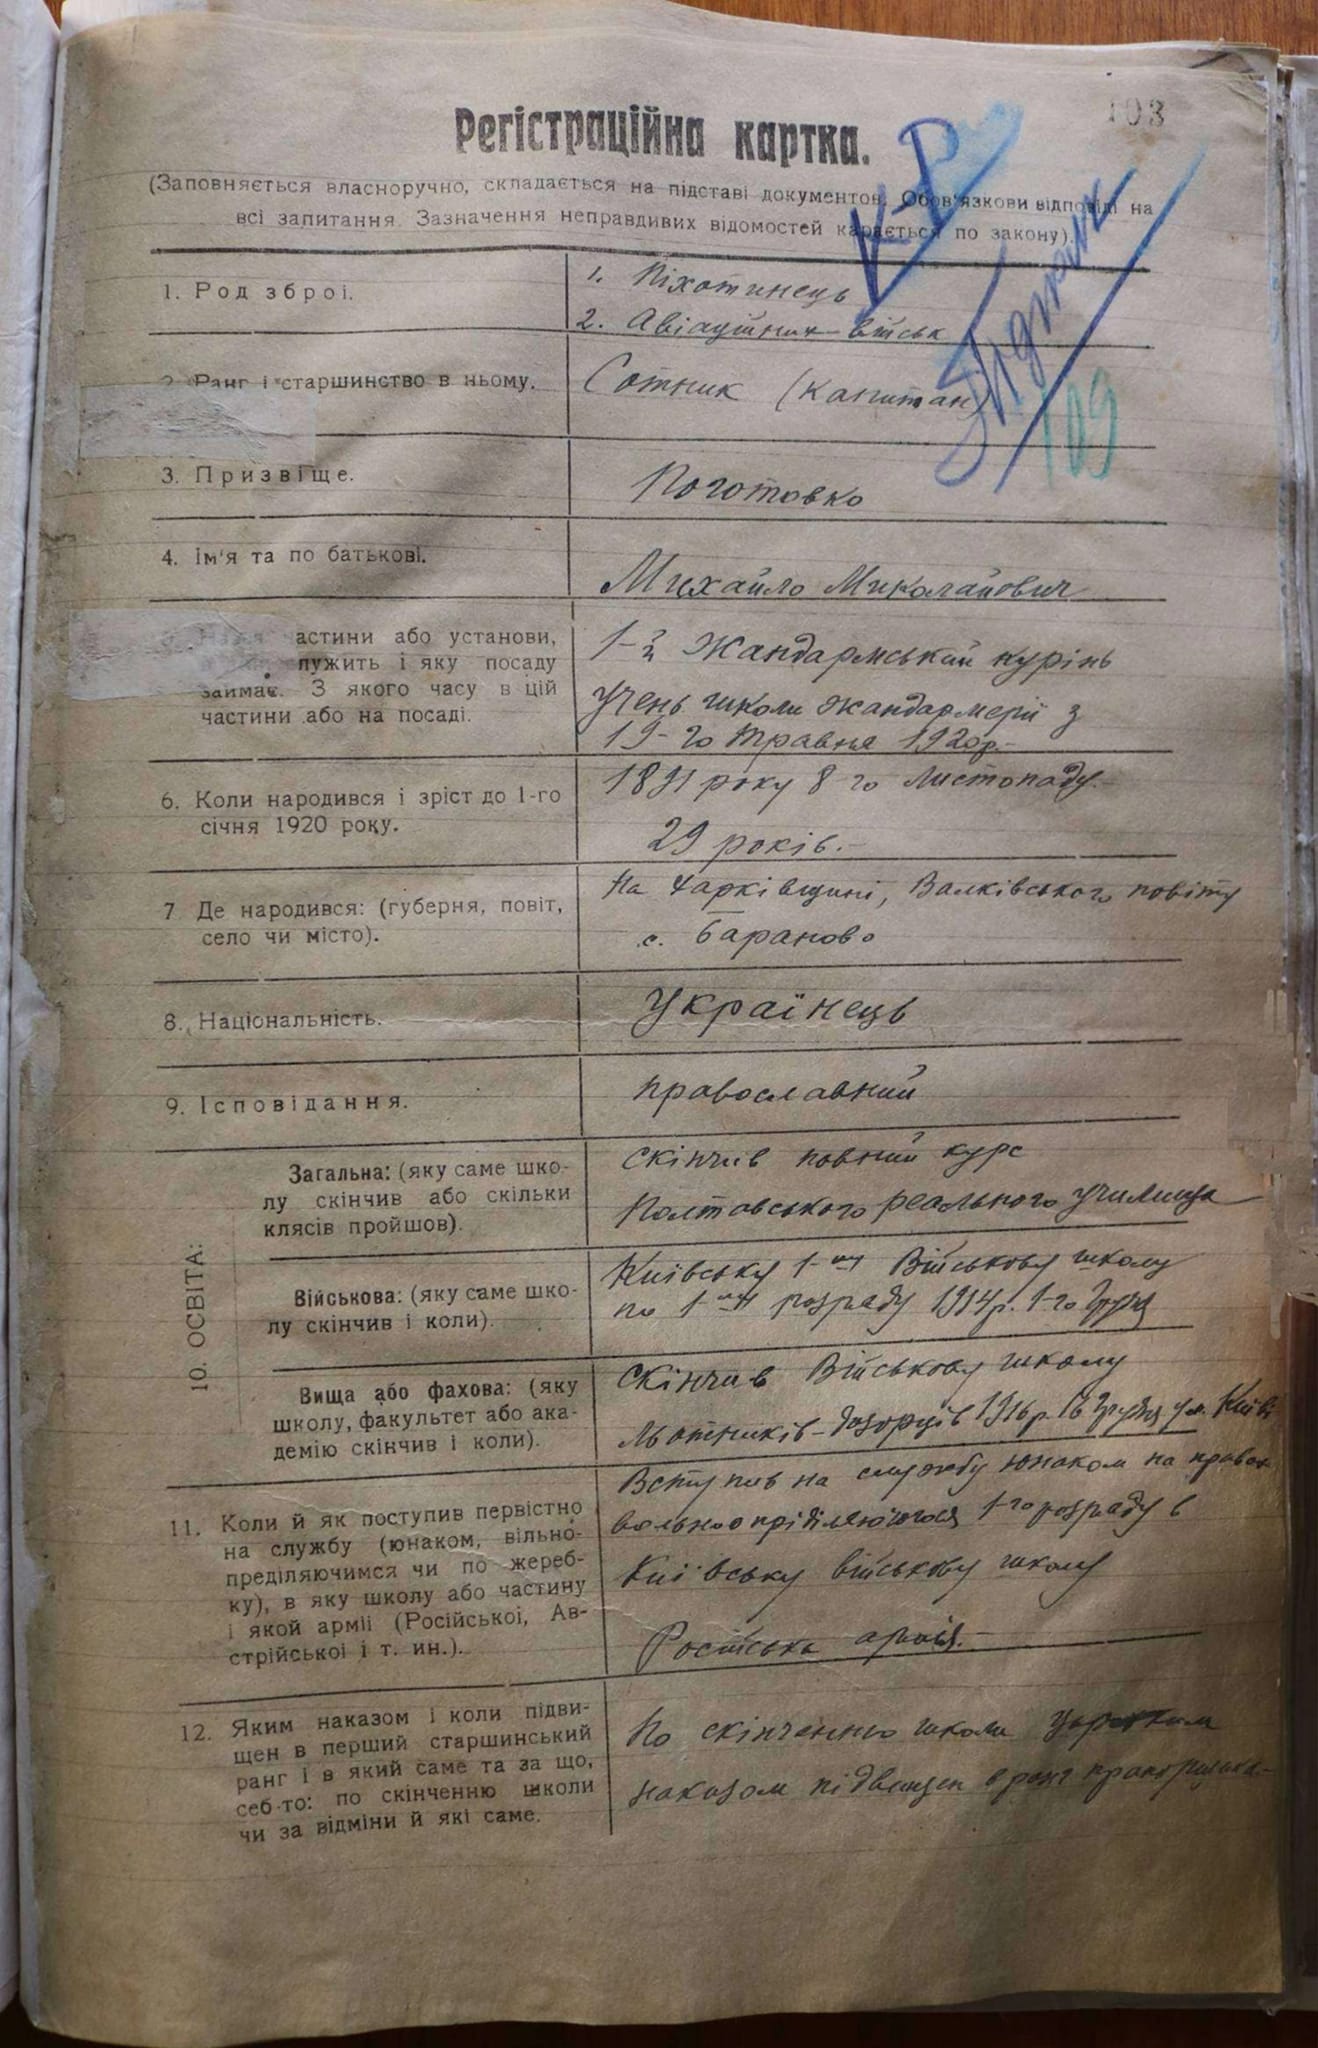 103
Регістраційна картка.
(Заповняється власноручно, складається на підставі документов. Обов'язкови відповіді на
всі запитання. Зазначення неправдивих відомостей карається по закону).
К-Р
109
1. Род зброі.
1. Піхотинець
2. Авіаційних військ
2. Ранг і старшинство в ньому.
Сотник (Капитан)
3. Призвіще.
Поготовко
4. Ім'я та по батькові.
Михайло Миколайович
астини або установи,
лужить і яку посаду
займає. З якого часу в цій
частини або на посаді.
1-й Жандармський курінь
учень школи жандармерії з
19-го травня 1920р.-
6. Коли народився і зріст до 1-го
січня 1920 року.
1891 року 8 го Листопаду.-
29 років.-
7 Де народився: (губерня, повіт,
село чи місто).
На Харківщині, Валківського повіту
с. Бараново
8. Національність.
Українець
9. Ісповідання.
православний
10. ОСВІТА:
Загальна: (яку саме шко-
лу скінчив або скільки
клясів пройшов).
скінчив повний курс
Полтавського реального училища
Військова: (яку саме шко-
лу скінчив і коли).
Київську 1-шу Військову школу
по 1-му розряду 1914р. 1-го Грудня
Вища або фахова: (яку
школу, факультет або ака-
демію скінчив і коли).
Скінчив Військову школу
Льотників- 1916р. 16 Грудня у м. Київі
11. Коли й як поступив первістно
на службу (юнаком, вільно-
преділяючимся чи по жереб-
ку), в яку школу або частину
і якой арміі (Російськоі, Ав-
стрійськоі і т. ин.).
Вступив на службу юнаком на правах
вольноопріділяючогося 1-го розряду в
Київську військову школу
Російська армія.-
12. Яким наказом і коли підви-
щен в перший старшинський
ранг і в який саме та за що,
себ-то: по скінченню школи
чи за відміни й які саме.
По скінченню школи
наказом підвищен в ранг прапорщика-